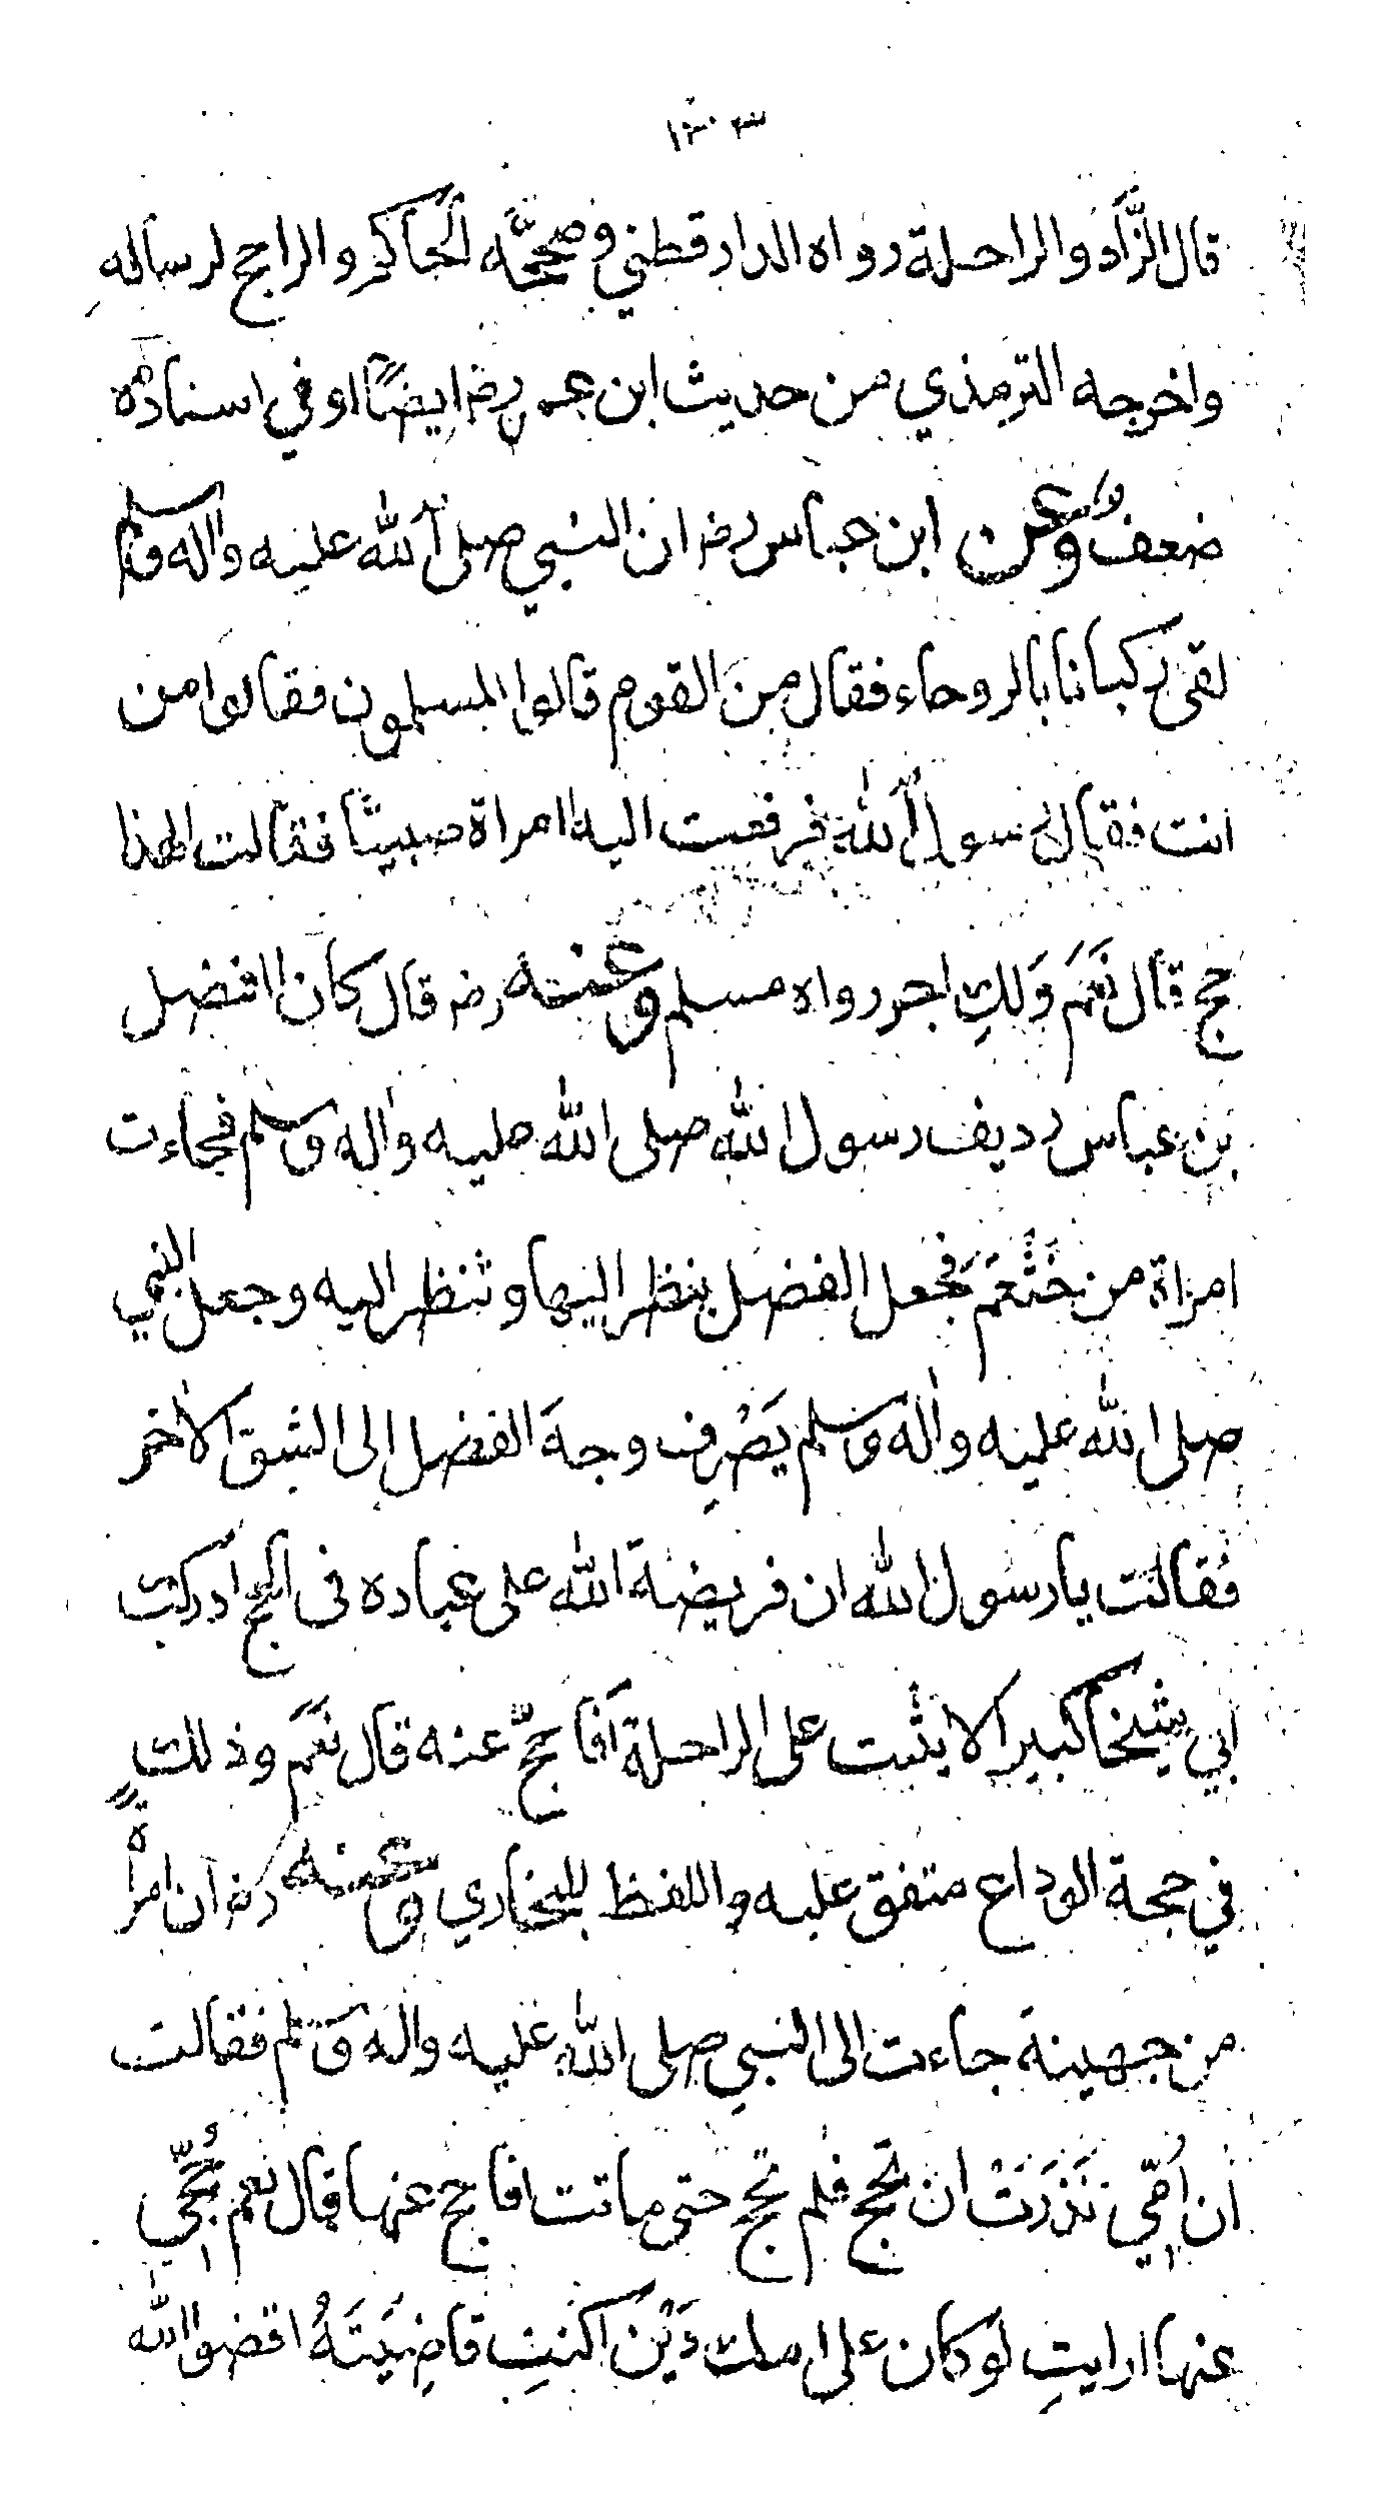 ١٣٠٣
قال الزَّاد والراحلة رواه الدارقطني وصححَّه الحاكم والراجح ارساله
واخرجه الترمذي من حديث ابن عمر رضـ ايضًا وفي اسناده
ضعف وعن ابن عباس رضـ ان النبي صلى الله عليه واله وسلم
لقى ركبانا بالروحاء فقال منَ القوم قالوا المسلمون فقالوا من
انت فقال رسول الله فرفعت اليه امراة صبيًّا فقالت الهذا
حج قال نَعَم وَلكِ اجر رواه مسلم وعنه رضـ قال كان الفضل
بن عباس رديف رسول الله صلى الله عليه واله وسلم فجاءت
امراة من خَثْعَمَ فجعل الفضل ينظر اليها وتنظر اليه وجعل النبي
صلى الله عليه واله وسلم يَصْرِف وجهَ الفضل الى الشق الاخر
فقالت يا رسول الله ان فريضة الله على عباده فى الحج ادركت
ابي شيخا كبيرا لا يثبت على الراحلة اَفاحجّ عنه قال نَعَم وذلك
في حجة الوداع متفق عليه واللفظ للبخاري وعنه رضـ ان امراة
من جهينة جاءت الى النبي صلى الله عليه واله وسلم فقالت
ان اُمّي نَذَرَتْ ان تحج فلم تحج حتى ماتت افاحج عنها قال نعم حُجّي
عنها ارايتِ لَو كان على امك دَيْن اكنتِ قاضِيَتَهُ اقضوا الله